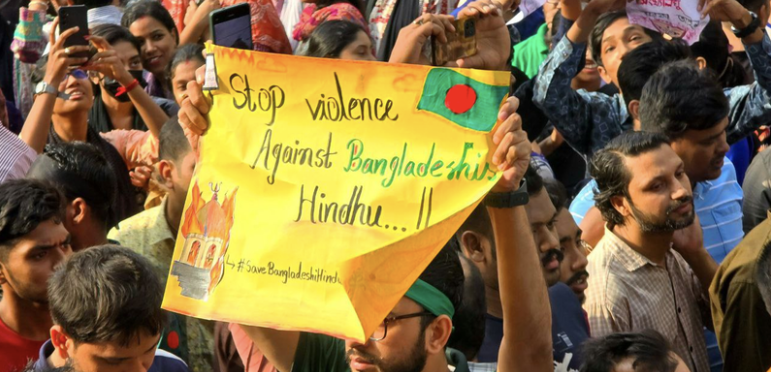 Stop violence
Against Bangladeshis
Hindhu...!!
#SaveBangladeshiHindu